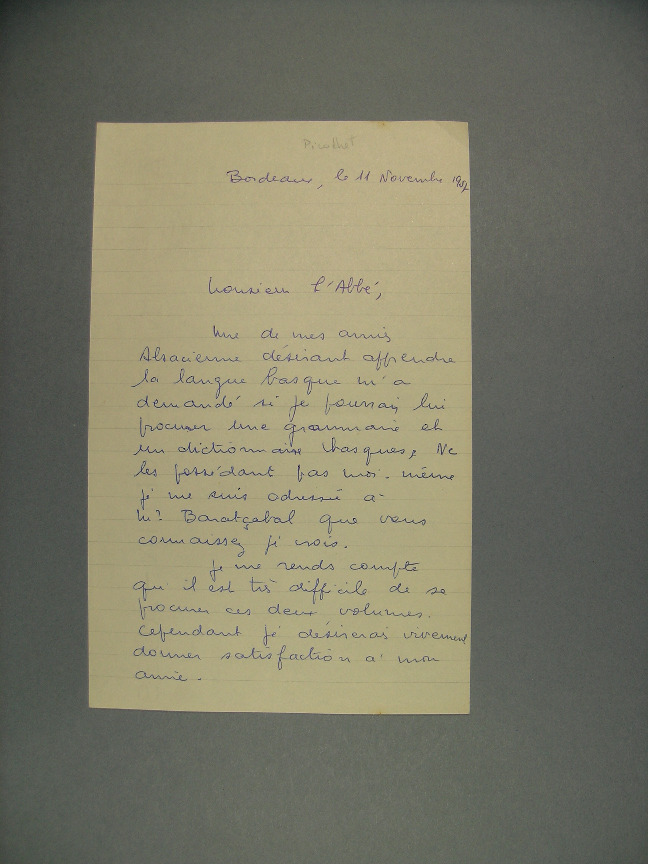 Bordeaux, le 11 Novembre
Monsieur l'Abbé,
Une de mes amies
Alsacienne désirant apprendre
la langue basque m'a
demandé si je pourrais lui
procurer une grammaire et
un dictionnaire basques. Ne
les possédant pas moi-même
je me suis adressé à
Mr Baratçabal que vous
connaissez je crois.
Je me rends compte
qu'il est très difficile de se
procurer ces deux volumes.
Cependant je désirerais vivement
donner satisfaction à mon
amie.